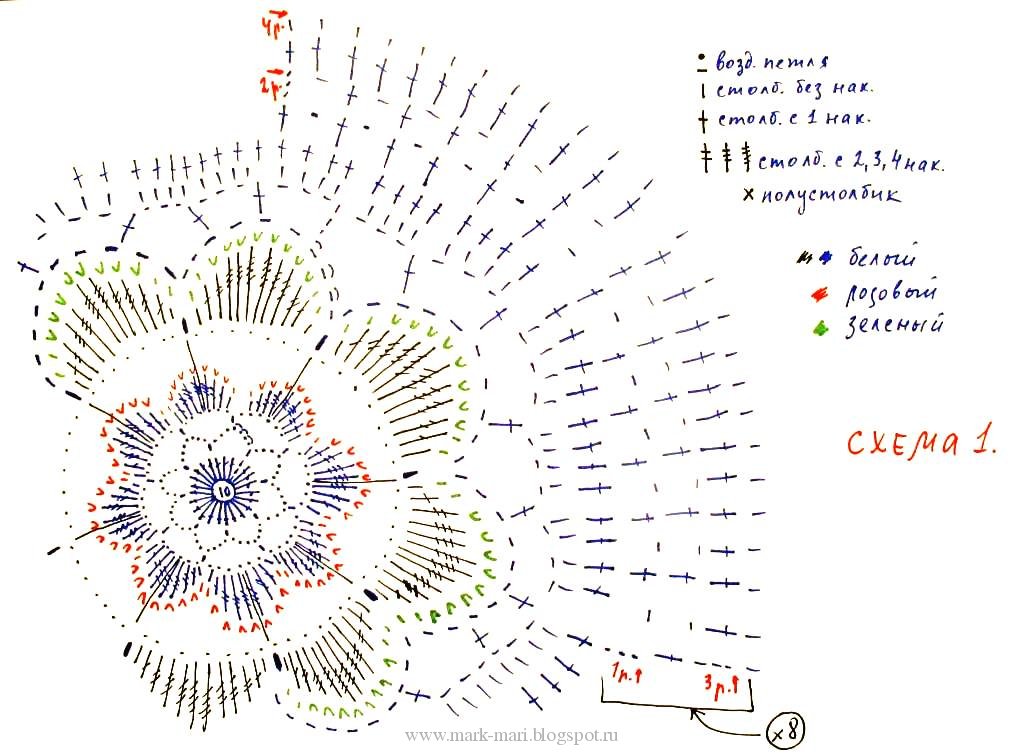 4р.
2р.
возд. петля
столб. без нак.
столб. с 1 нак.
столб. с 2, 3, 4 нак.
x полустолбик
белый
розовый
зеленый
СХЕМА 1.
10
1р.
3р.
x8
www.mark-mari.blogspot.ru